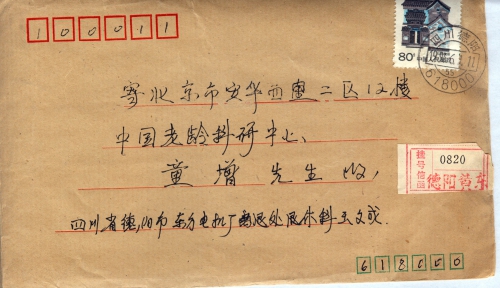 100011
80分
四川德阳
618000
寄北京市安华西里二区12楼
中国老龄科研中心
童增 先生 收
挂号信函
0820
四川省德阳市东方电机厂离退处展休科王文成
618000